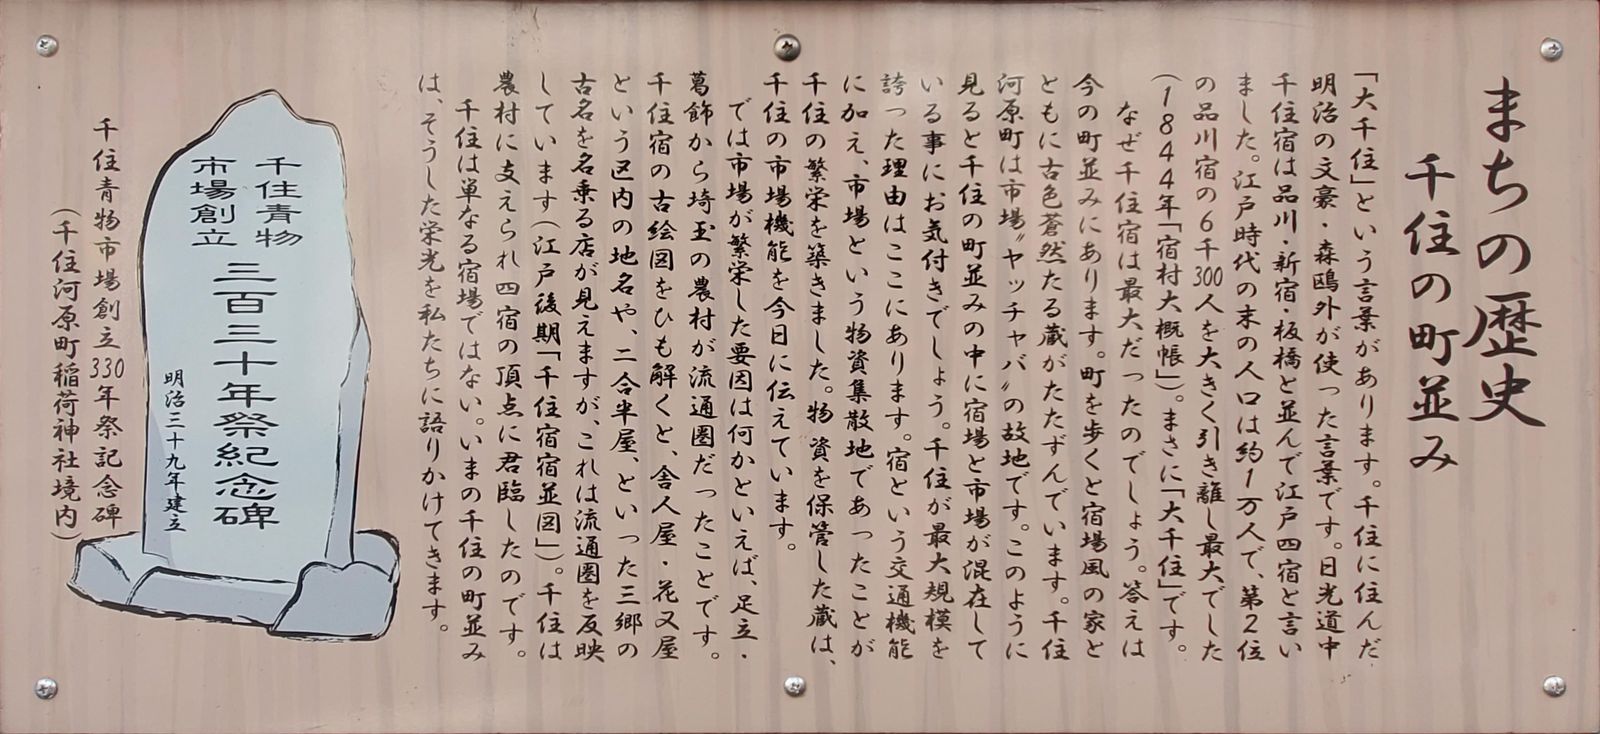 まちの歴史
千住の町並み
「大千住」という言葉があります。千住に住んだ、
明治の文豪・森鴎外が使った言葉です。日光道中
千住宿は品川・新宿・板橋と並んで江戸四宿と言い
ました。江戸時代の末の人口は約1万人で、第2位
の品川宿の6千300人を大きく引き離し最大でした
(1844年「宿村大概帳」)。まさに「大千住」です。
なぜ千住宿は最大だったのでしょう。答えは
今の町並みにあります。町を歩くと宿場風の家と
ともに古色蒼然たる蔵がたたずんでいます。千住
河原町は市場〝ヤッチャバ〟の故地です。このように
見ると千住の町並みの中に宿場と市場が混在して
いる事にお気付きでしょう。千住が最大規模を
誇った理由はここにあります。宿という交通機能
に加え、市場という物資集散地であったことが
千住の繁栄を築きました。物資を保管した蔵は、
千住の市場機能を今日に伝えています。
では市場が繁栄した要因は何かといえば、足立・
葛飾から埼玉の農村が流通圏だったことです。
千住宿の古絵図をひも解くと、舎人屋・花又屋
という区内の地名や、二合半屋、といった三郷の
古名を名乗る店が見えますが、これは流通圏を反映
しています(江戸後期「千住宿宿並図」)。千住は
農村に支えられ四宿の頂点に君臨したのです。
千住は単なる宿場ではない。いまの千住の町並み
は、そうした栄光を私たちに語りかけてきます。
千住青物
市場創立
三百三十年祭紀念碑
明治三十九年建立
千住青物市場創立330年祭記念碑
(千住河原町稲荷神社境内)